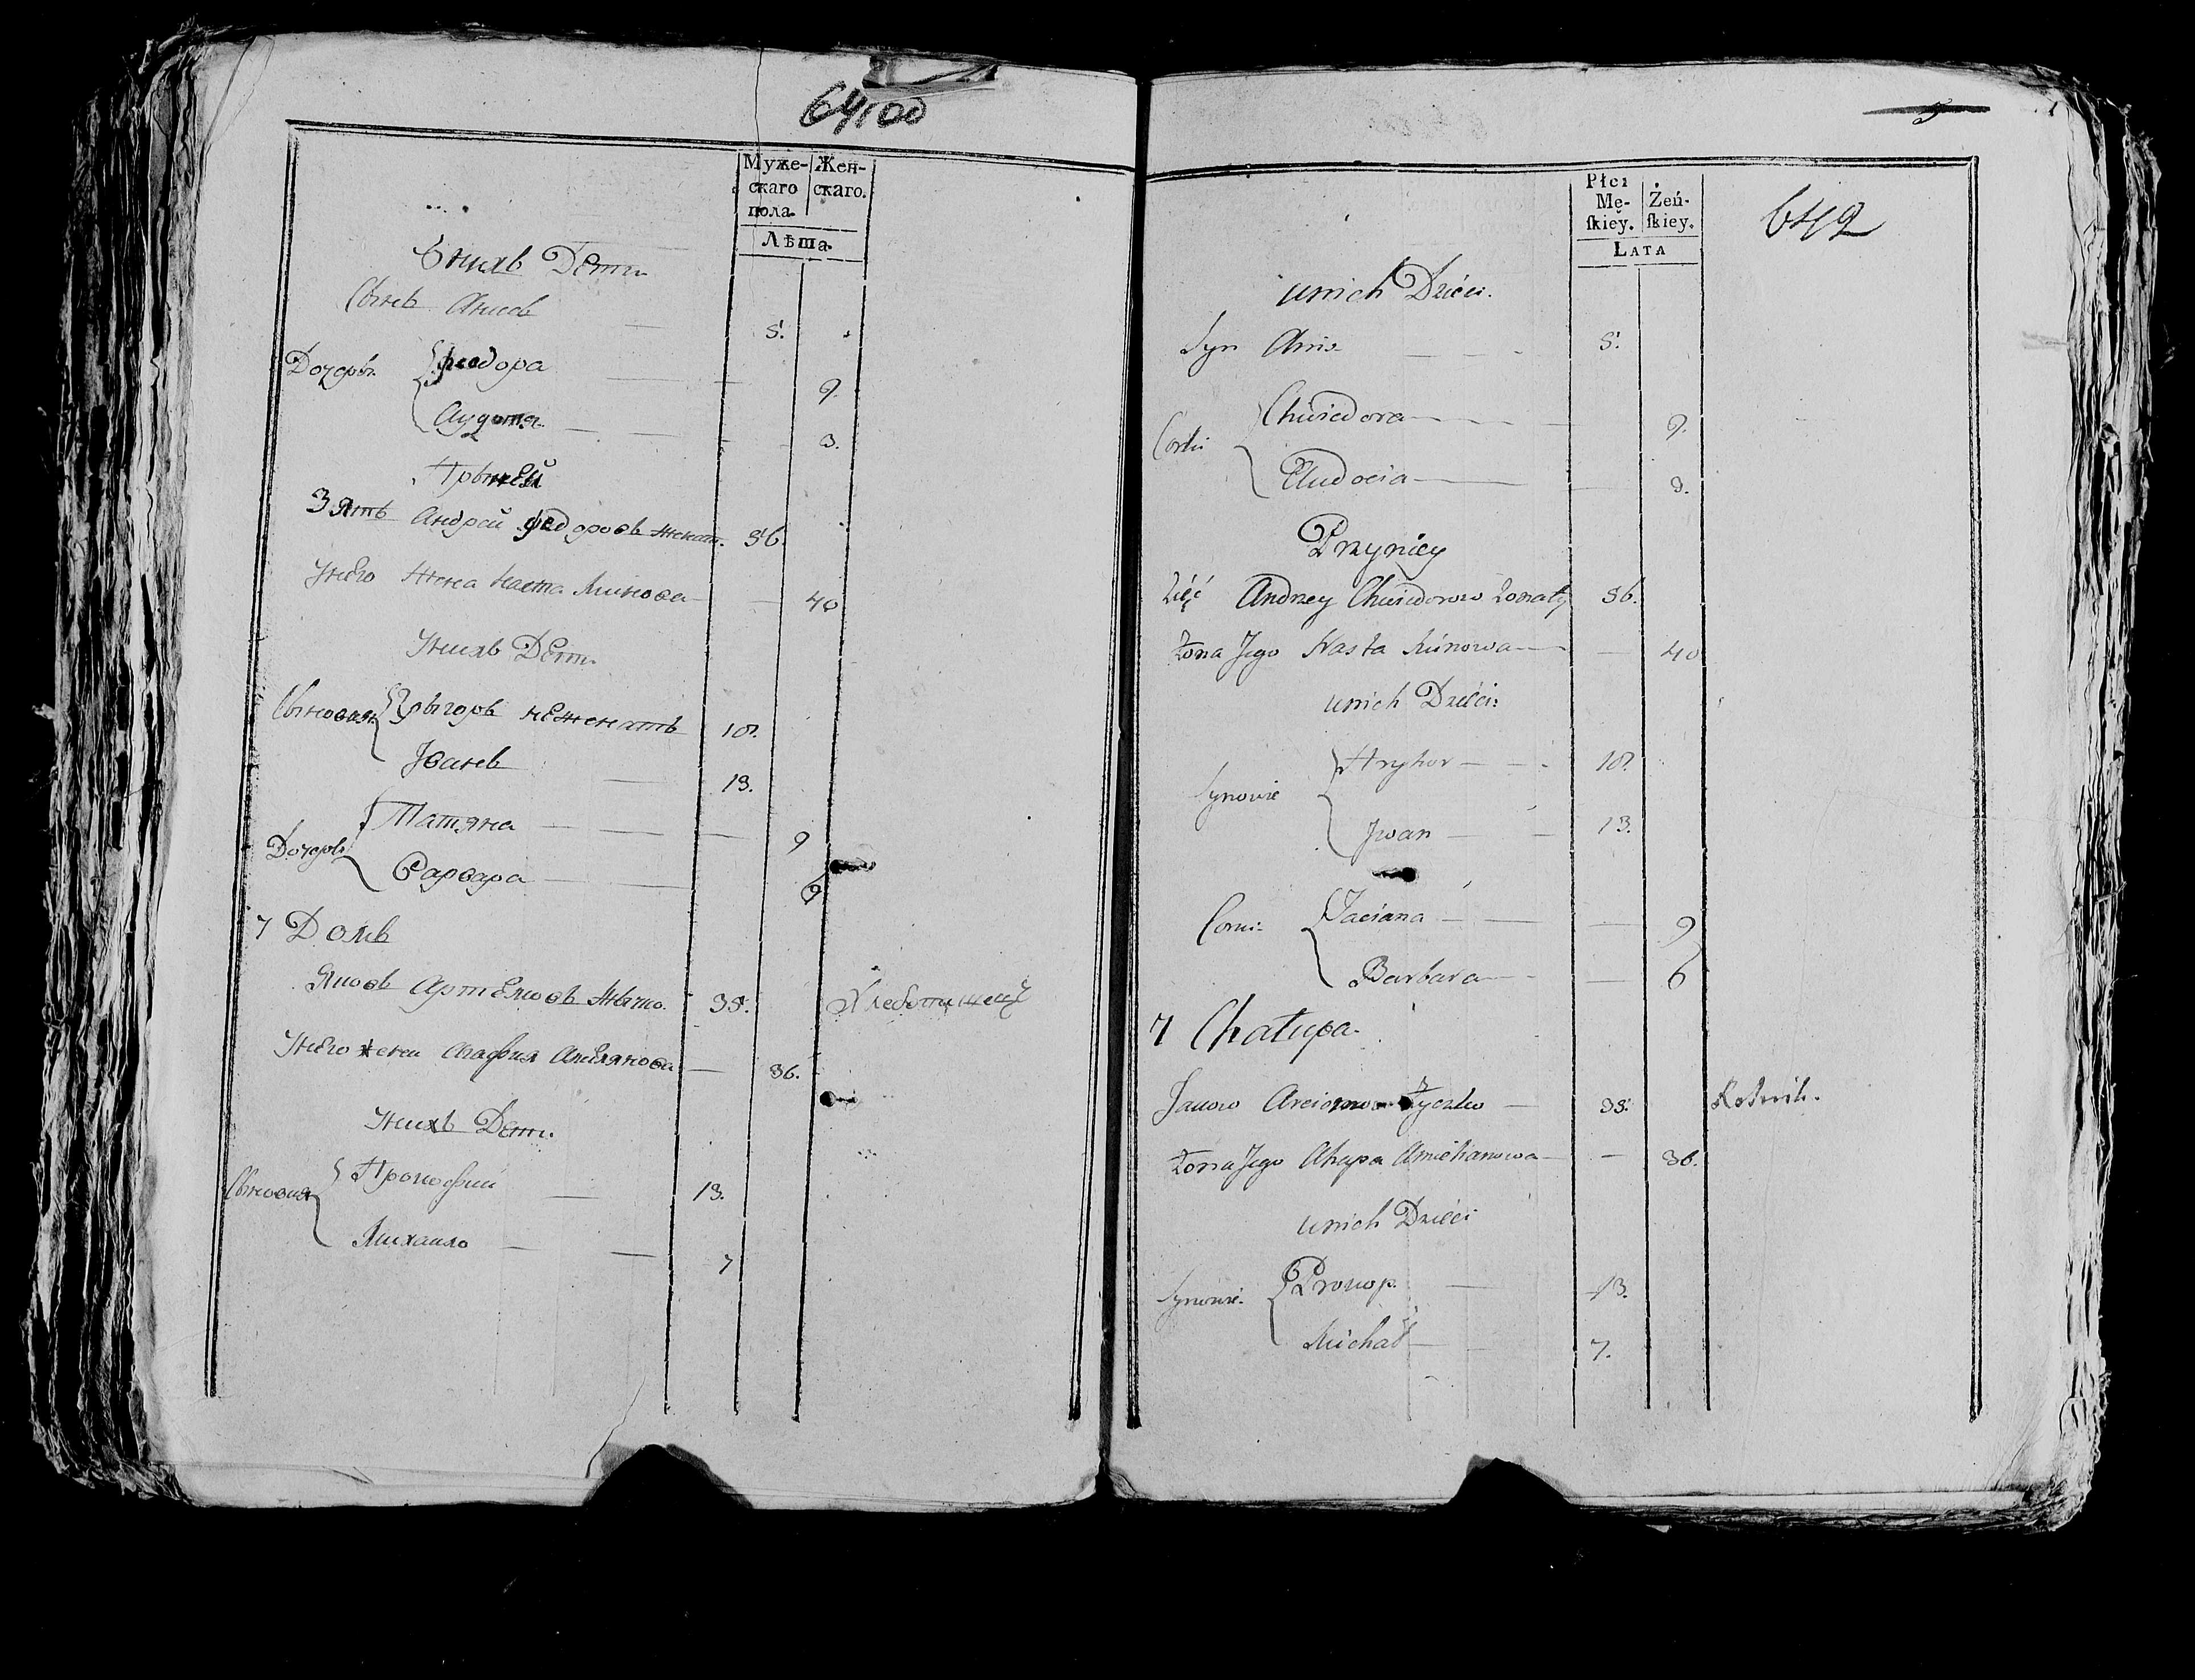 64,об
Муже- Жен-
скаго скаго.
пола.
Лѣта.
Унихъ Дети
Сынъ Анисъ 5.
Дочеры Феодора 9.
Аудотя 3.
Прыней
Зять Андрей Федоровъ женат. 56.
Унего жена Наста Минова 40
Унихъ Дети
Сыновия Грыгоръ нежонатъ 18.
Иванъ 13.
Дочеры Татяна 9
Варвара 6
7 Домъ
Яковъ Артемовъ 35. Хлебопашец
Унего жена Амелянова 36.
Унихъ Дети
Сыновия Прокофий 13.
Михаило 7
5
Płci
Mę- Żeń-
skiey. skiey.
LATA
649
unich Dzieci.
Syn Anis 5.
Corki Chwiedora 9.
Eudocia 3.
Przyniey
Zięć Andrzey Chwiedorow Zonaty 56.
Żona Jego Nasta Minowa 40
unich Dzieci
Synowie Hryhor 18.
Jwan 13.
Corki Taciana 9
Barbara 6
7 Chałupa.
Jakow Arciomow Życzko 35. Rolnik.
Żona Jego Ahapa Amielianowa 36.
unich Dzieci
Synowie Prokop 13.
Michał 7.